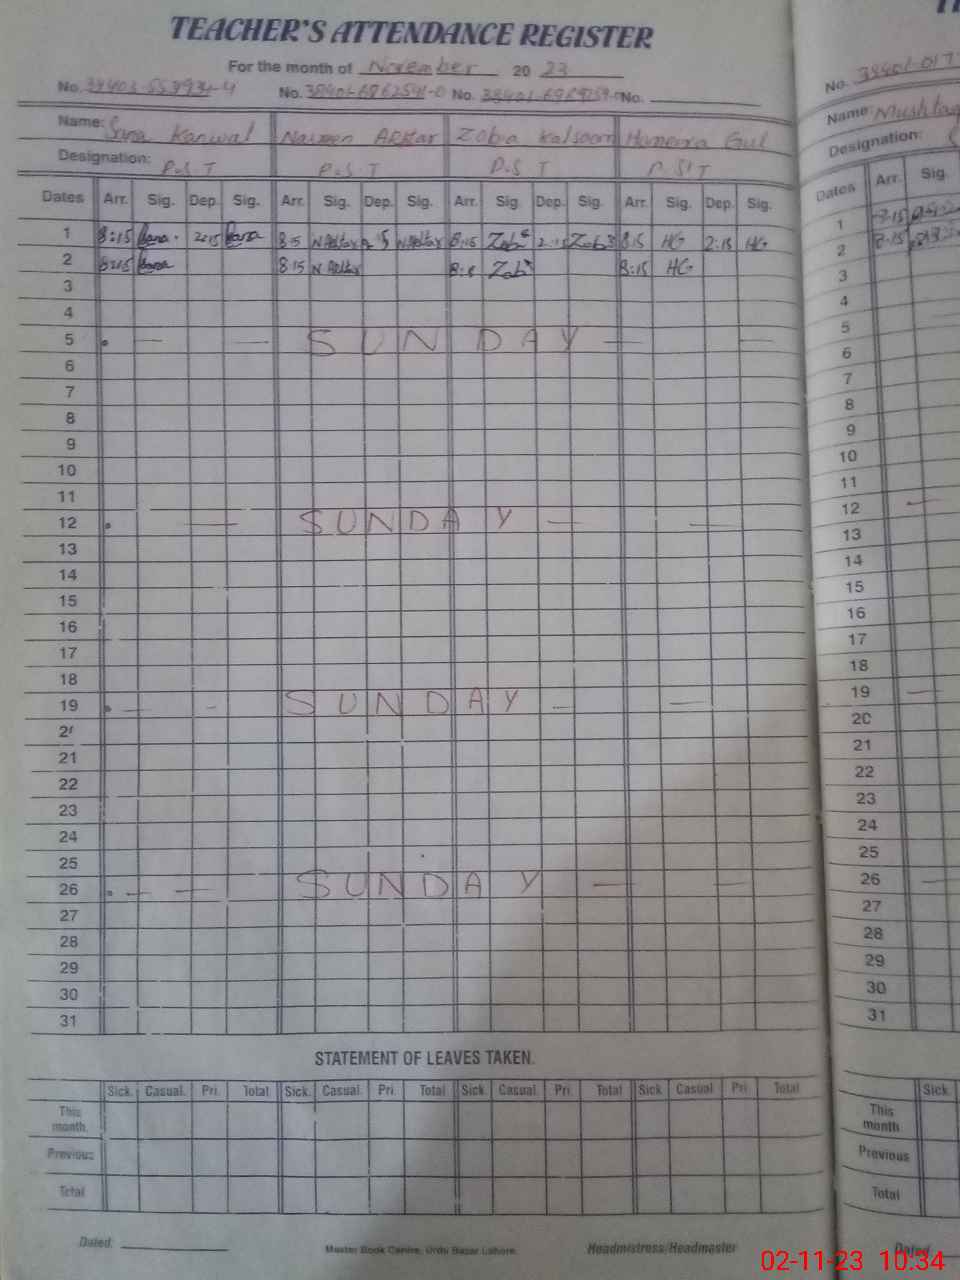 TEACHER'S ATTENDANCE REGISTER
For the month of November 20 23
No. No. No. No.
Name: Sana Kanwal Naureen Akhtar Zobia Kalsoom Humaira Gul
Designation: P.S.T P.S.T P.S.T P.S.T
Dates Arr. Sig. Dep. Sig. Arr. Sig. Dep. Sig. Arr. Sig. Dep. Sig. Arr. Sig. Dep. Sig.
1 8:15 Sana 2:15 Sana 8:15 N Akhtar N Akhtar 8:15 Zobi 2:15 Zobi 8:15 HG 2:15 HG
2 8:15 Sana 8:15 N Akhtar 8:15 Zobi 8:15 HG
3
4
5 SUNDAY
6
7
8
9
10
11
12 SUNDAY
13
14
15
16
17
18
19 SUNDAY
20
21
22
23
24
25
26 SUNDAY
27
28
29
30
31
STATEMENT OF LEAVES TAKEN.
Sick. Casual. Pri. Total Sick. Casual. Pri. Total Sick. Casual. Pri. Total Sick. Casual Pri. Total
This month.
Previous
Total
Dated: Master Book Centre, Urdu Bazar Lahore. Headmistress/Headmaster
No.
Name: Mushtaq
Designation:
Dates Arr. Sig.
1 8:15
2 8:15
3
4
5
6
7
8
9
10
11
12
13
14
15
16
17
18
19
20
21
22
23
24
25
26
27
28
29
30
31
Sick
This month
Previous
Total
Dated
02-11-23 10:34